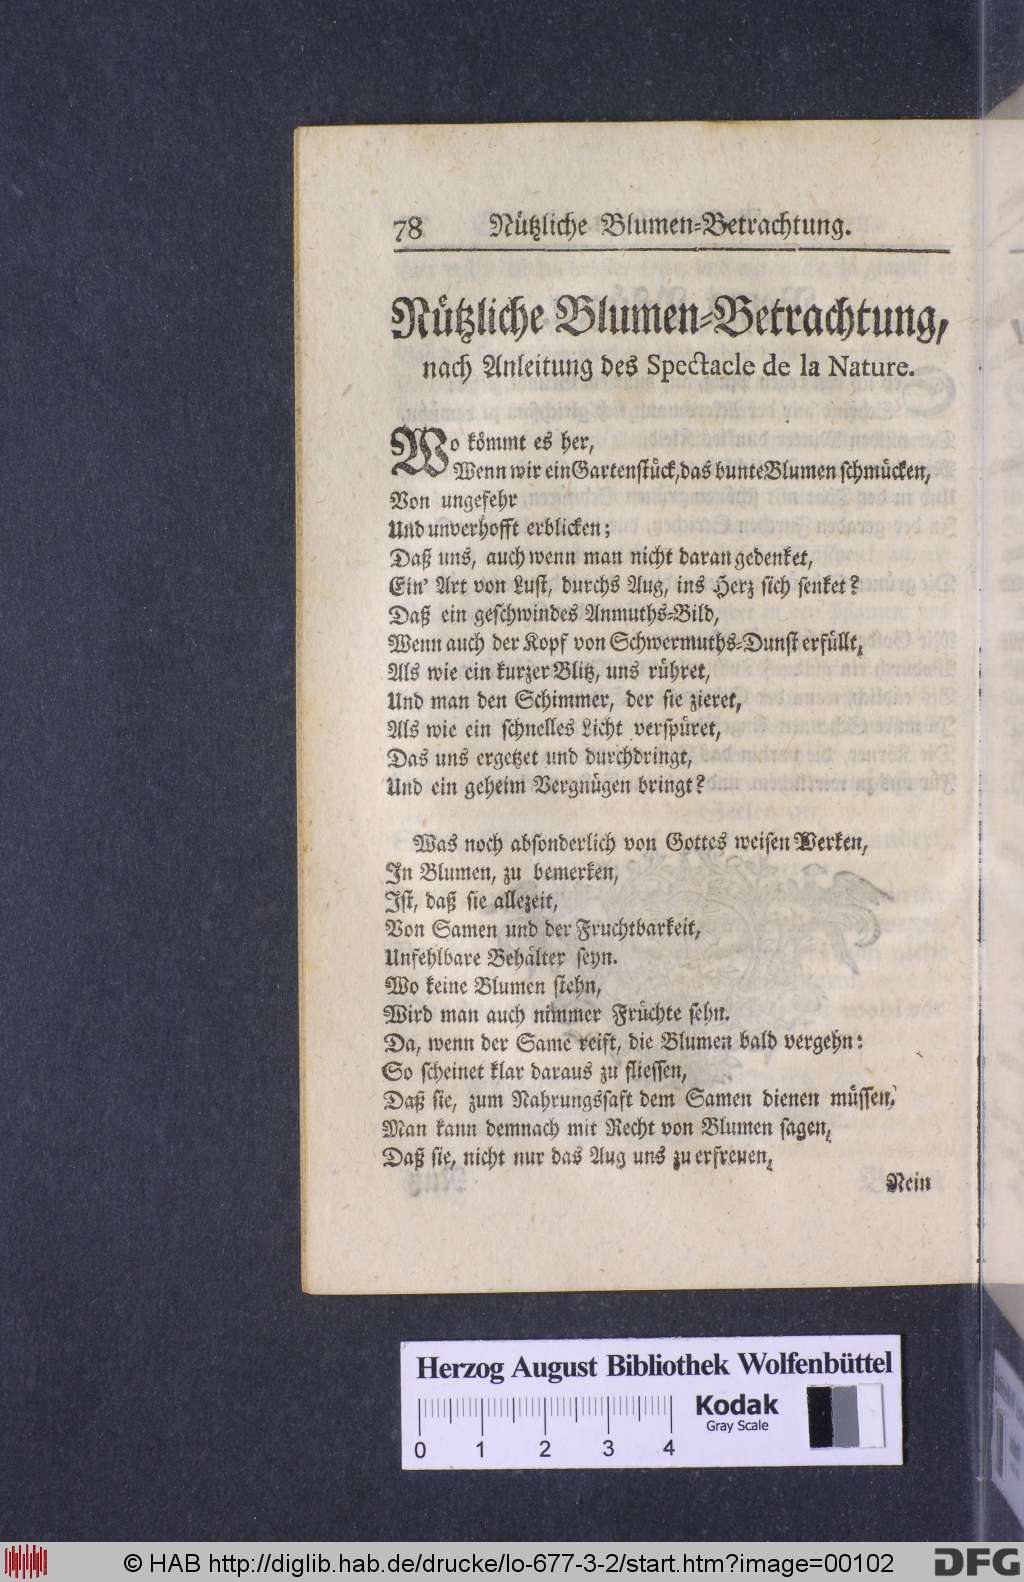 78 Nützliche Blumen-Betrachtung.
Nützliche Blumen-Betrachtung,
nach Anleitung des Spectacle de la Nature.
Wo kömmt es her,
Wenn wir ein Gartenstück, das bunte Blumen schmücken,
Von ungefehr
Und unverhofft erblicken;
Daß uns, auch wenn man nicht daran gedenket,
Ein' Art von Lust, durchs Aug, ins Herz sich senket?
Daß ein geschwindes Anmuths-Bild,
Wenn auch der Kopf von Schwermuths-Dunst erfüllt,
Als wie ein kurzer Blitz, uns rühret,
Und man den Schimmer, der sie zieret,
Als wie ein schnelles Licht verspüret,
Das uns ergetzet und durchdringt,
Und ein geheim Vergnügen bringt?
Was noch absonderlich von Gottes weisen Werken,
In Blumen, zu bemerken,
Ist, daß sie allezeit,
Von Samen und der Fruchtbarkeit,
Unfehlbare Behälter seyn.
Wo keine Blumen stehn,
Wird man auch nimmer Früchte sehn.
Da, wenn der Same reift, die Blumen bald vergehn:
So scheinet klar daraus zu fliessen,
Daß sie, zum Nahrungssaft dem Samen dienen müssen.
Man kann demnach mit Recht von Blumen sagen,
Daß sie, nicht nur das Aug uns zu erfreuen,
Nein
Herzog August Bibliothek Wolfenbüttel
0 1 2 3 4
Kodak
Gray Scale
© HAB http://diglib.hab.de/drucke/lo-677-3-2/start.htm?image=00102
DFG